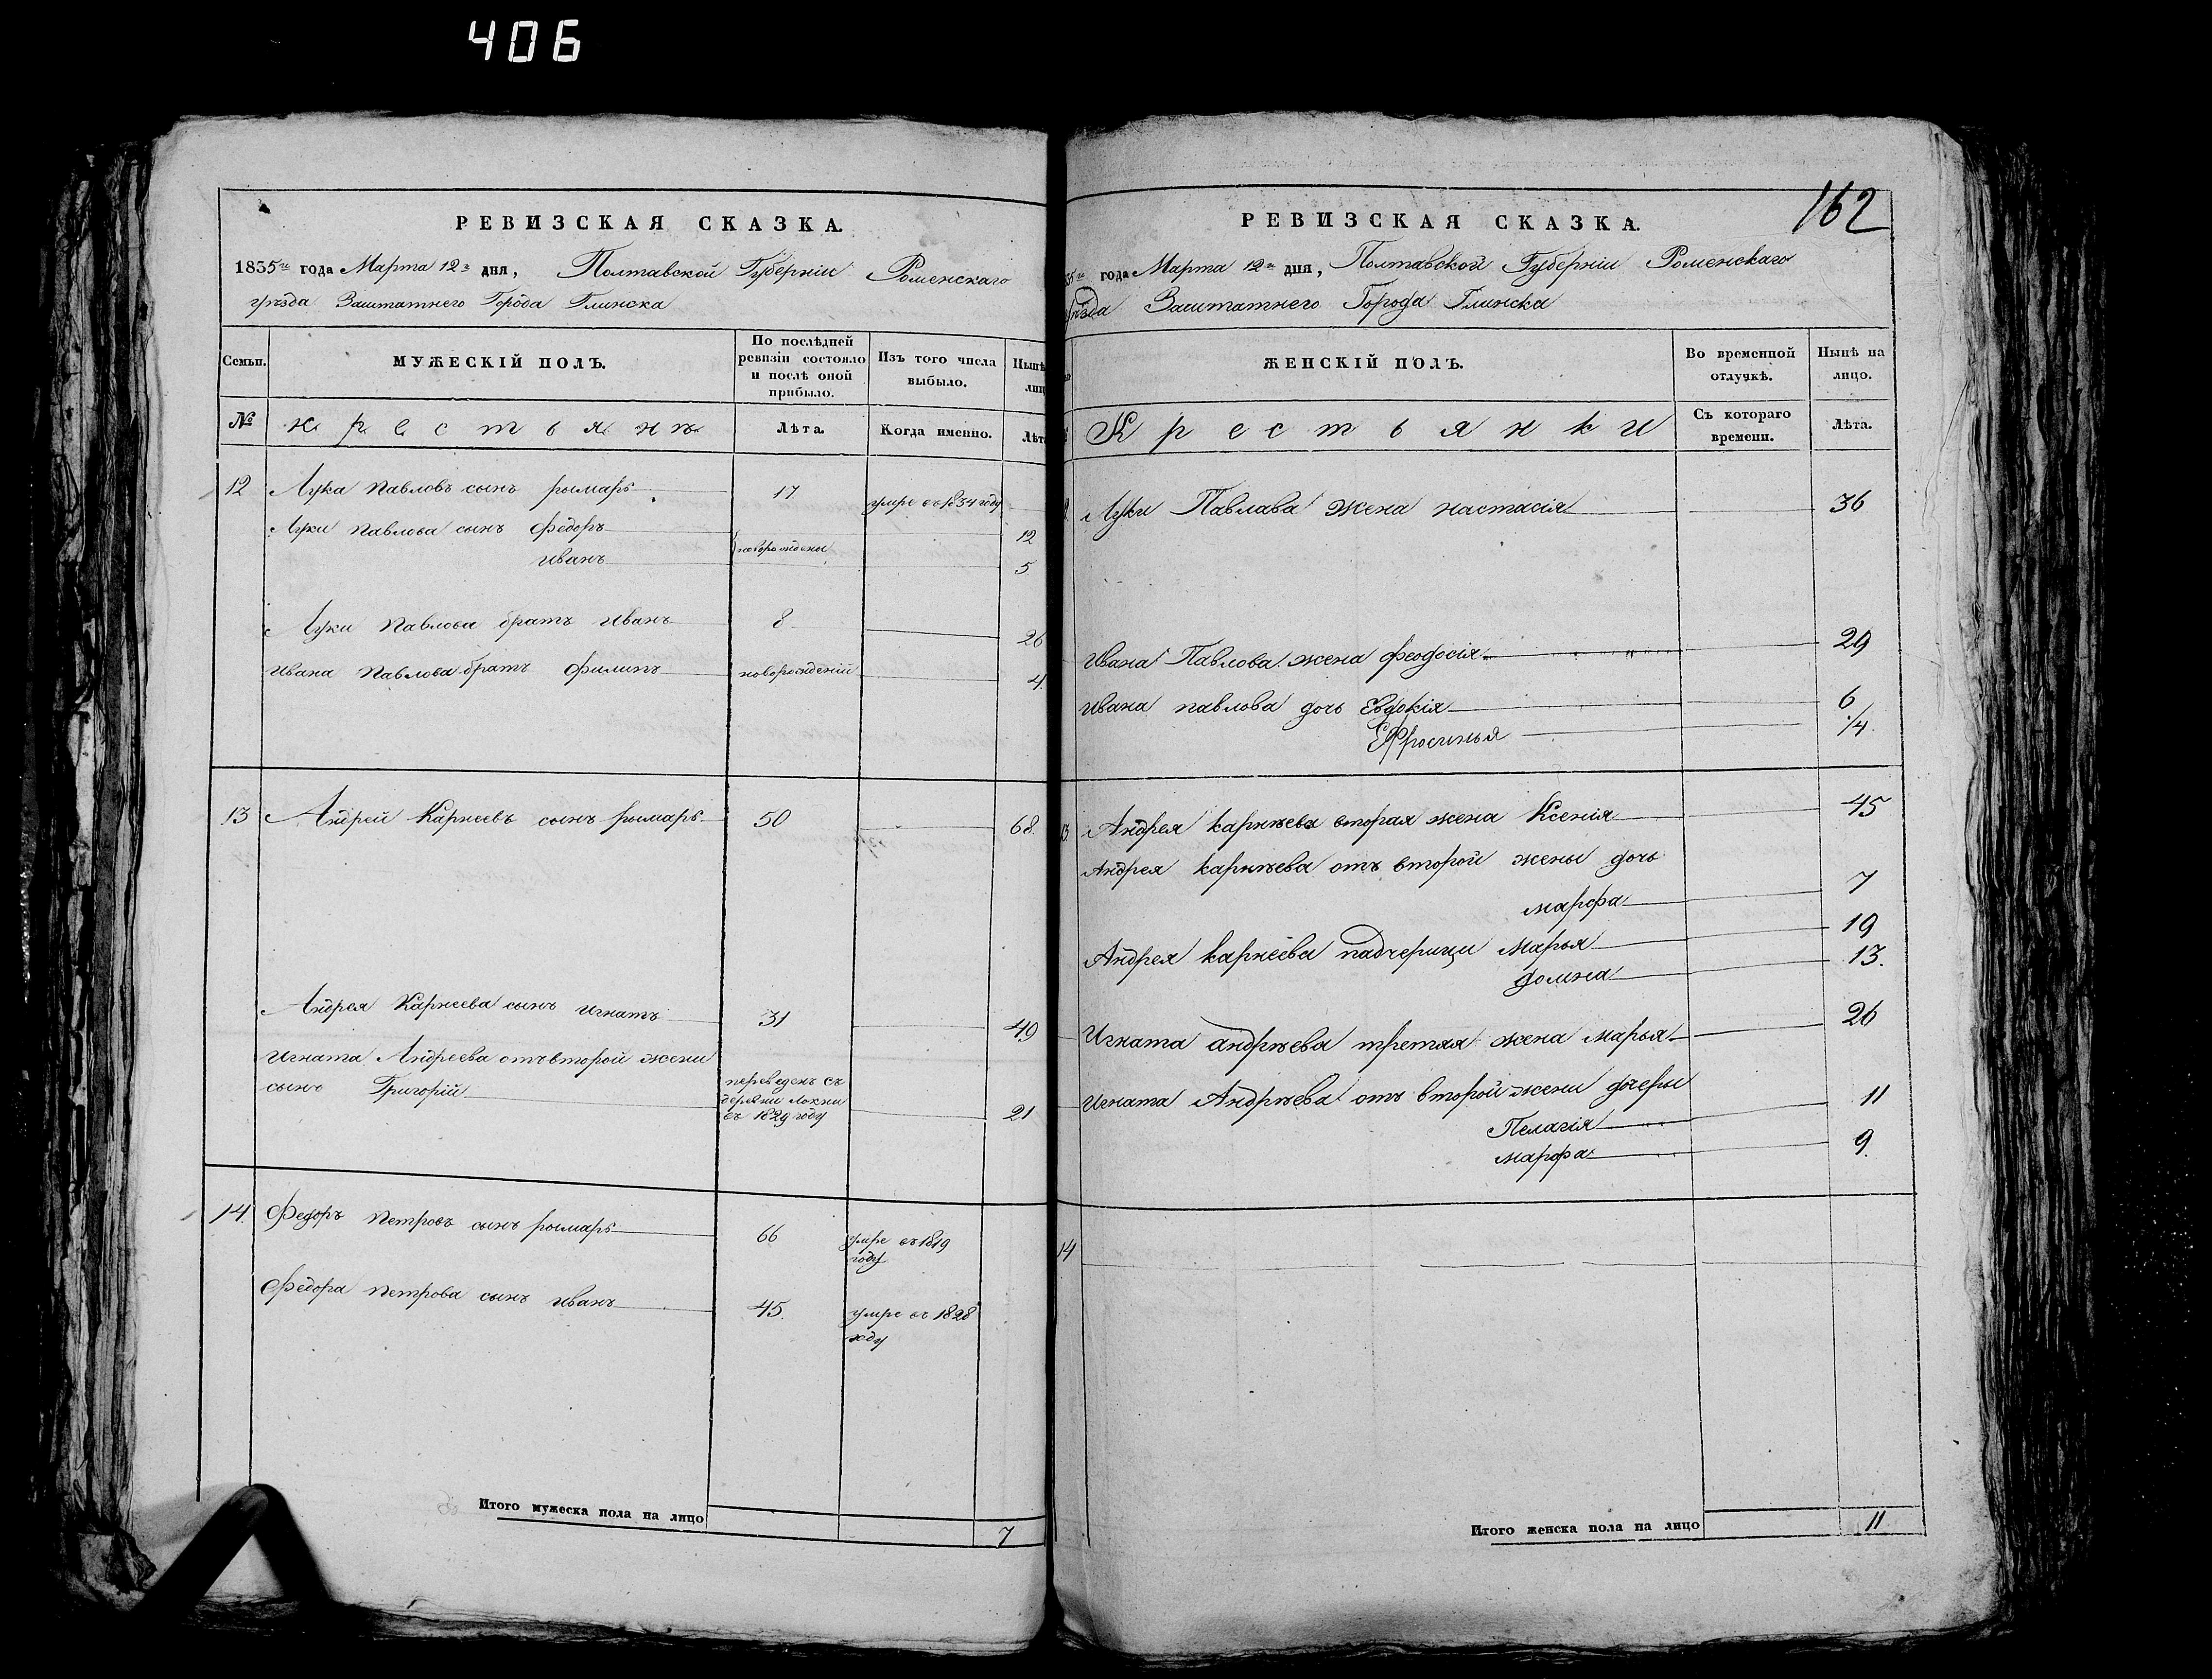 406
РЕВИЗСКАЯ СКАЗКА.
1835го года Марта 12го дня, Полтавской Губерніи Роменскаго
уѣзда Заштатнего Города Глинска
Семьи.
МУЖЕСКІЙ ПОЛЪ.
По послѣдней
ревизіи состояло
и послѣ оной
прибыло.
Изъ того числа
выбыло.
Нынѣ
лиц
№
крестьянъ
Лѣта.
Когда именно.
Лѣт
12 Лука Павловъ сынъ рымарь 17 умре въ 1834 году
Луки Павлова сынъ Федоръ 12
новорождены
иванъ 5
Луки Павлова братъ Иванъ 8 26
Ивана Павлова братъ Филипъ новорождений 4.
13 Андрей Карнеевъ сынъ рымарь 50 68.
Андрея Карнеева сынъ Игнатъ 31 49
Игната Андреева отъ второй жени
сынъ Григорій
переведенъ съ
деревни локни
въ 1829 году
21
14. Федоръ Петровъ сынъ рымарь 66 умре въ 1819
году
Федора Петрова сынъ иванъ 45. умре въ 1828
году
Итого мужеска пола на лицо 7
162
РЕВИЗСКАЯ СКАЗКА.
35го года Марта 12го дня, Полтавской Губерніи Роменскаго
уѣзда Заштатнего Города Глинска
ЖЕНСКІЙ ПОЛЪ.
Во временной
отлучкѣ.
Нынѣ на
лицо.
Крестьянки
Съ котораго
времени.
Лѣта.
Луки Павлава жена настасія 36
Ивана Павлова жена феодосія 29
Ивана павлова дочь Евдокія 6
Ефросинья 1/4
13. Андрея карнѣева вторая жена Ксенія 45
Андрея карнѣева отъ второй жены дочь
марфа 7
Андрея карнеева падчерици Марья 19
домна 13.
Игната андрѣева третяя жена марья 26
Игната Андрѣева отъ второй жени дочеры
Пелагія 11
марфа 9.
14
Итого женска пола на лицо 11